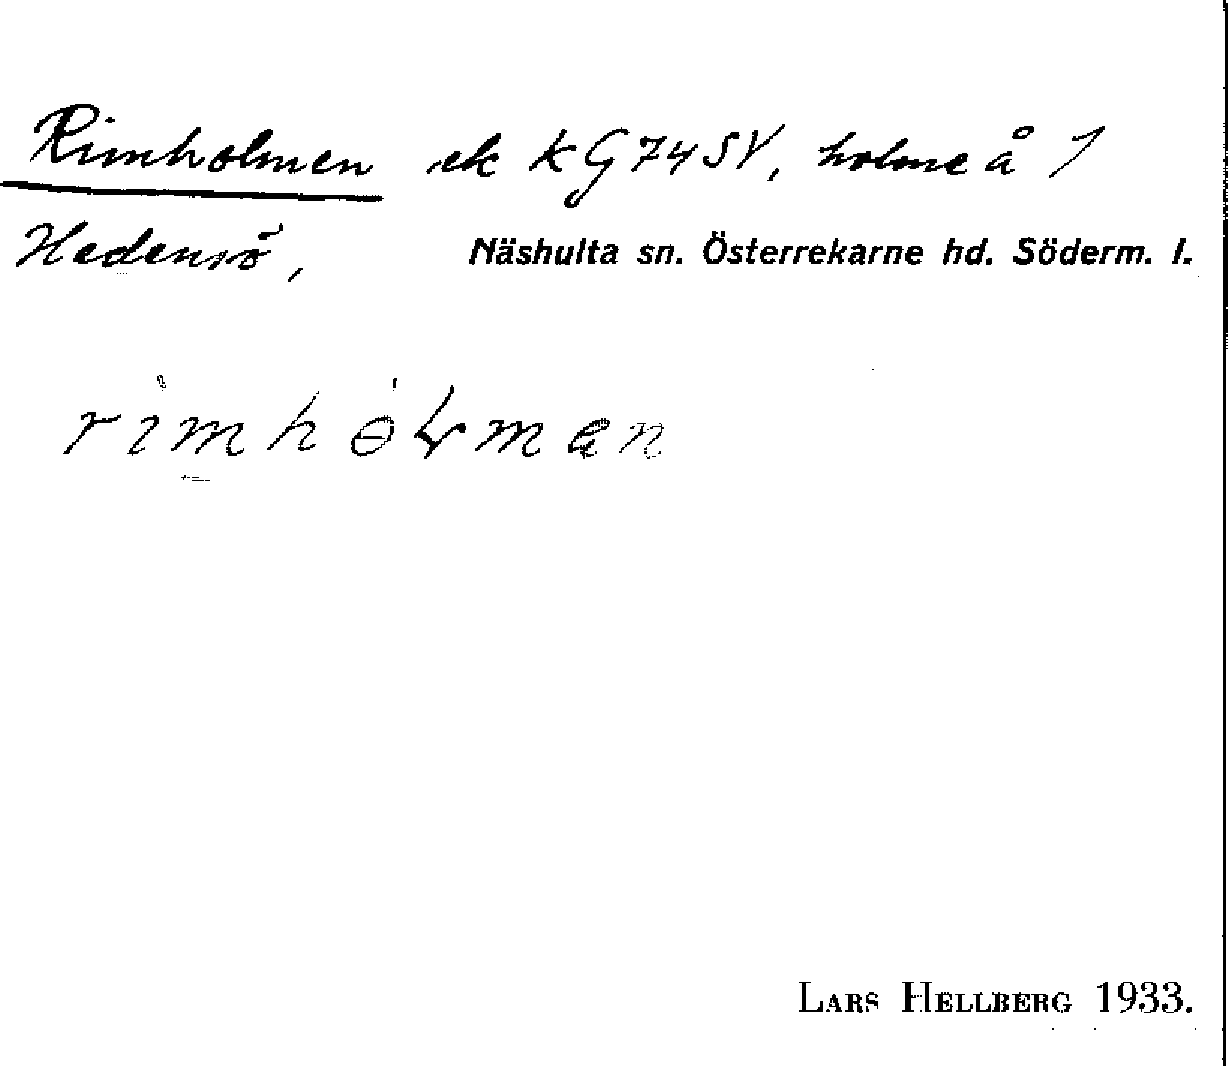 Rimholmen ek KG74SV, holme å 1
Hedensö, Näshulta sn. Österrekarne hd. Söderm. l.
rimhɵlmen
LARS HELLBERG 1933.